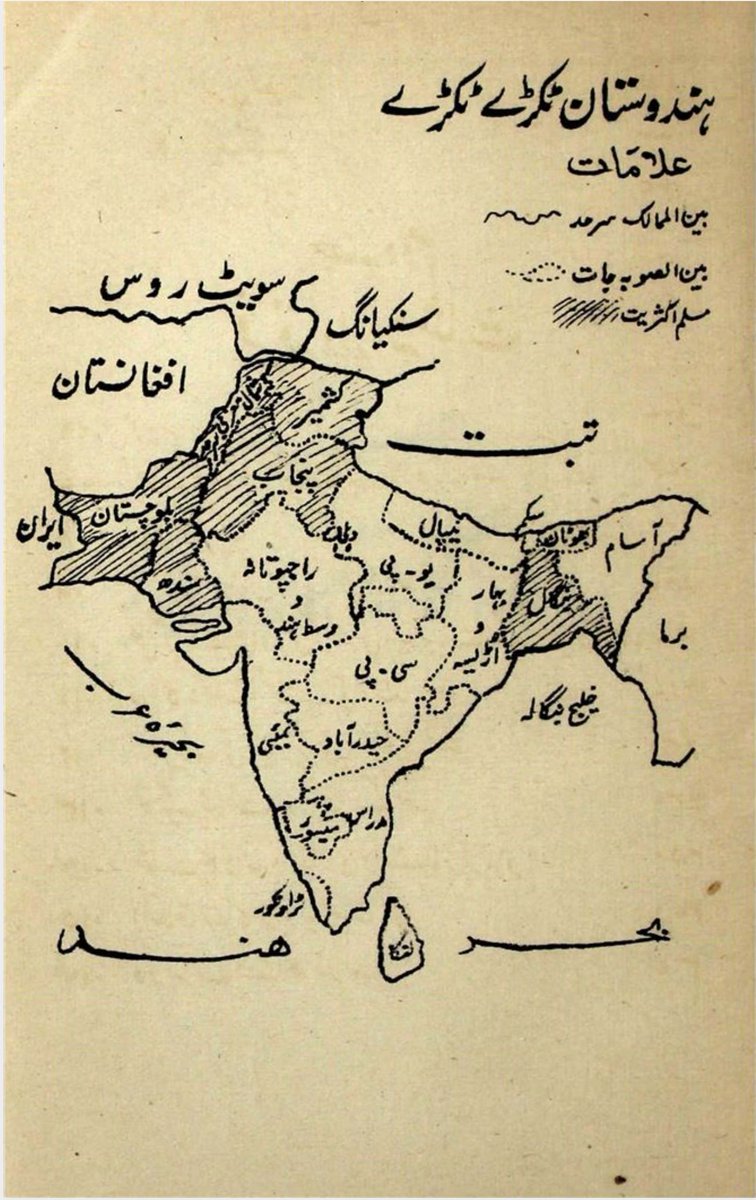 ہندوستان ٹکڑے ٹکڑے
علامات
بین الممالک سرحد
بین الصوبہ جات
مسلم اکثریت
سوویٹ روس
سنکیانگ
افغانستان
کشمیر
تبت
پنجاب
ایران
بلوچستان
دہلی
نیپال
بھوٹان
آسام
سندھ
راجپوتانہ
و
وسط ہند
یو۔پی
بہار
و
اڑیسہ
بنگال
برما
سی۔پی
خلیج بنگالہ
بحیرہ عرب
بمبئی
حیدرآباد
مدراس
میسور
ٹراونکور
لنکا
بحر ہند